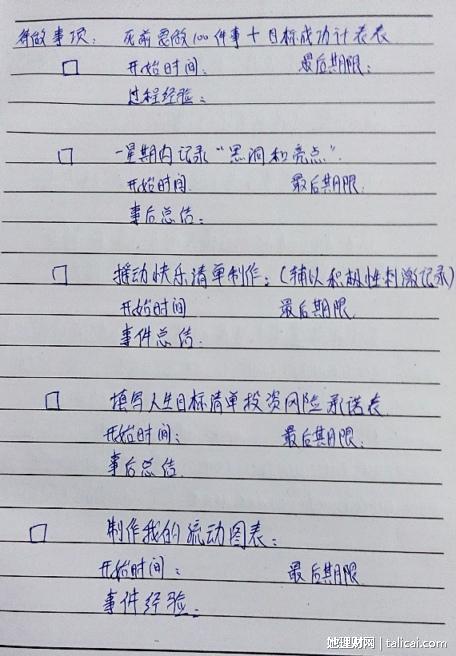 待做事项: 死前想做100件事+目标成功计表表
开始时间: 最后期限:
过程经验:
一星期内记录“黑洞和亮点”.
开始时间. 最后期限.
事后总结:
摇动快乐清单制作:(辅以积极性刺激记录)
开始时间 最后期限
事件总结.
填写人生目标清单投资风险承诺表
开始时间: 最后期限.
事后总结.
制作我的流动图表:
开始时间: 最后期限
事件经验:
她理财网 | talicai.com